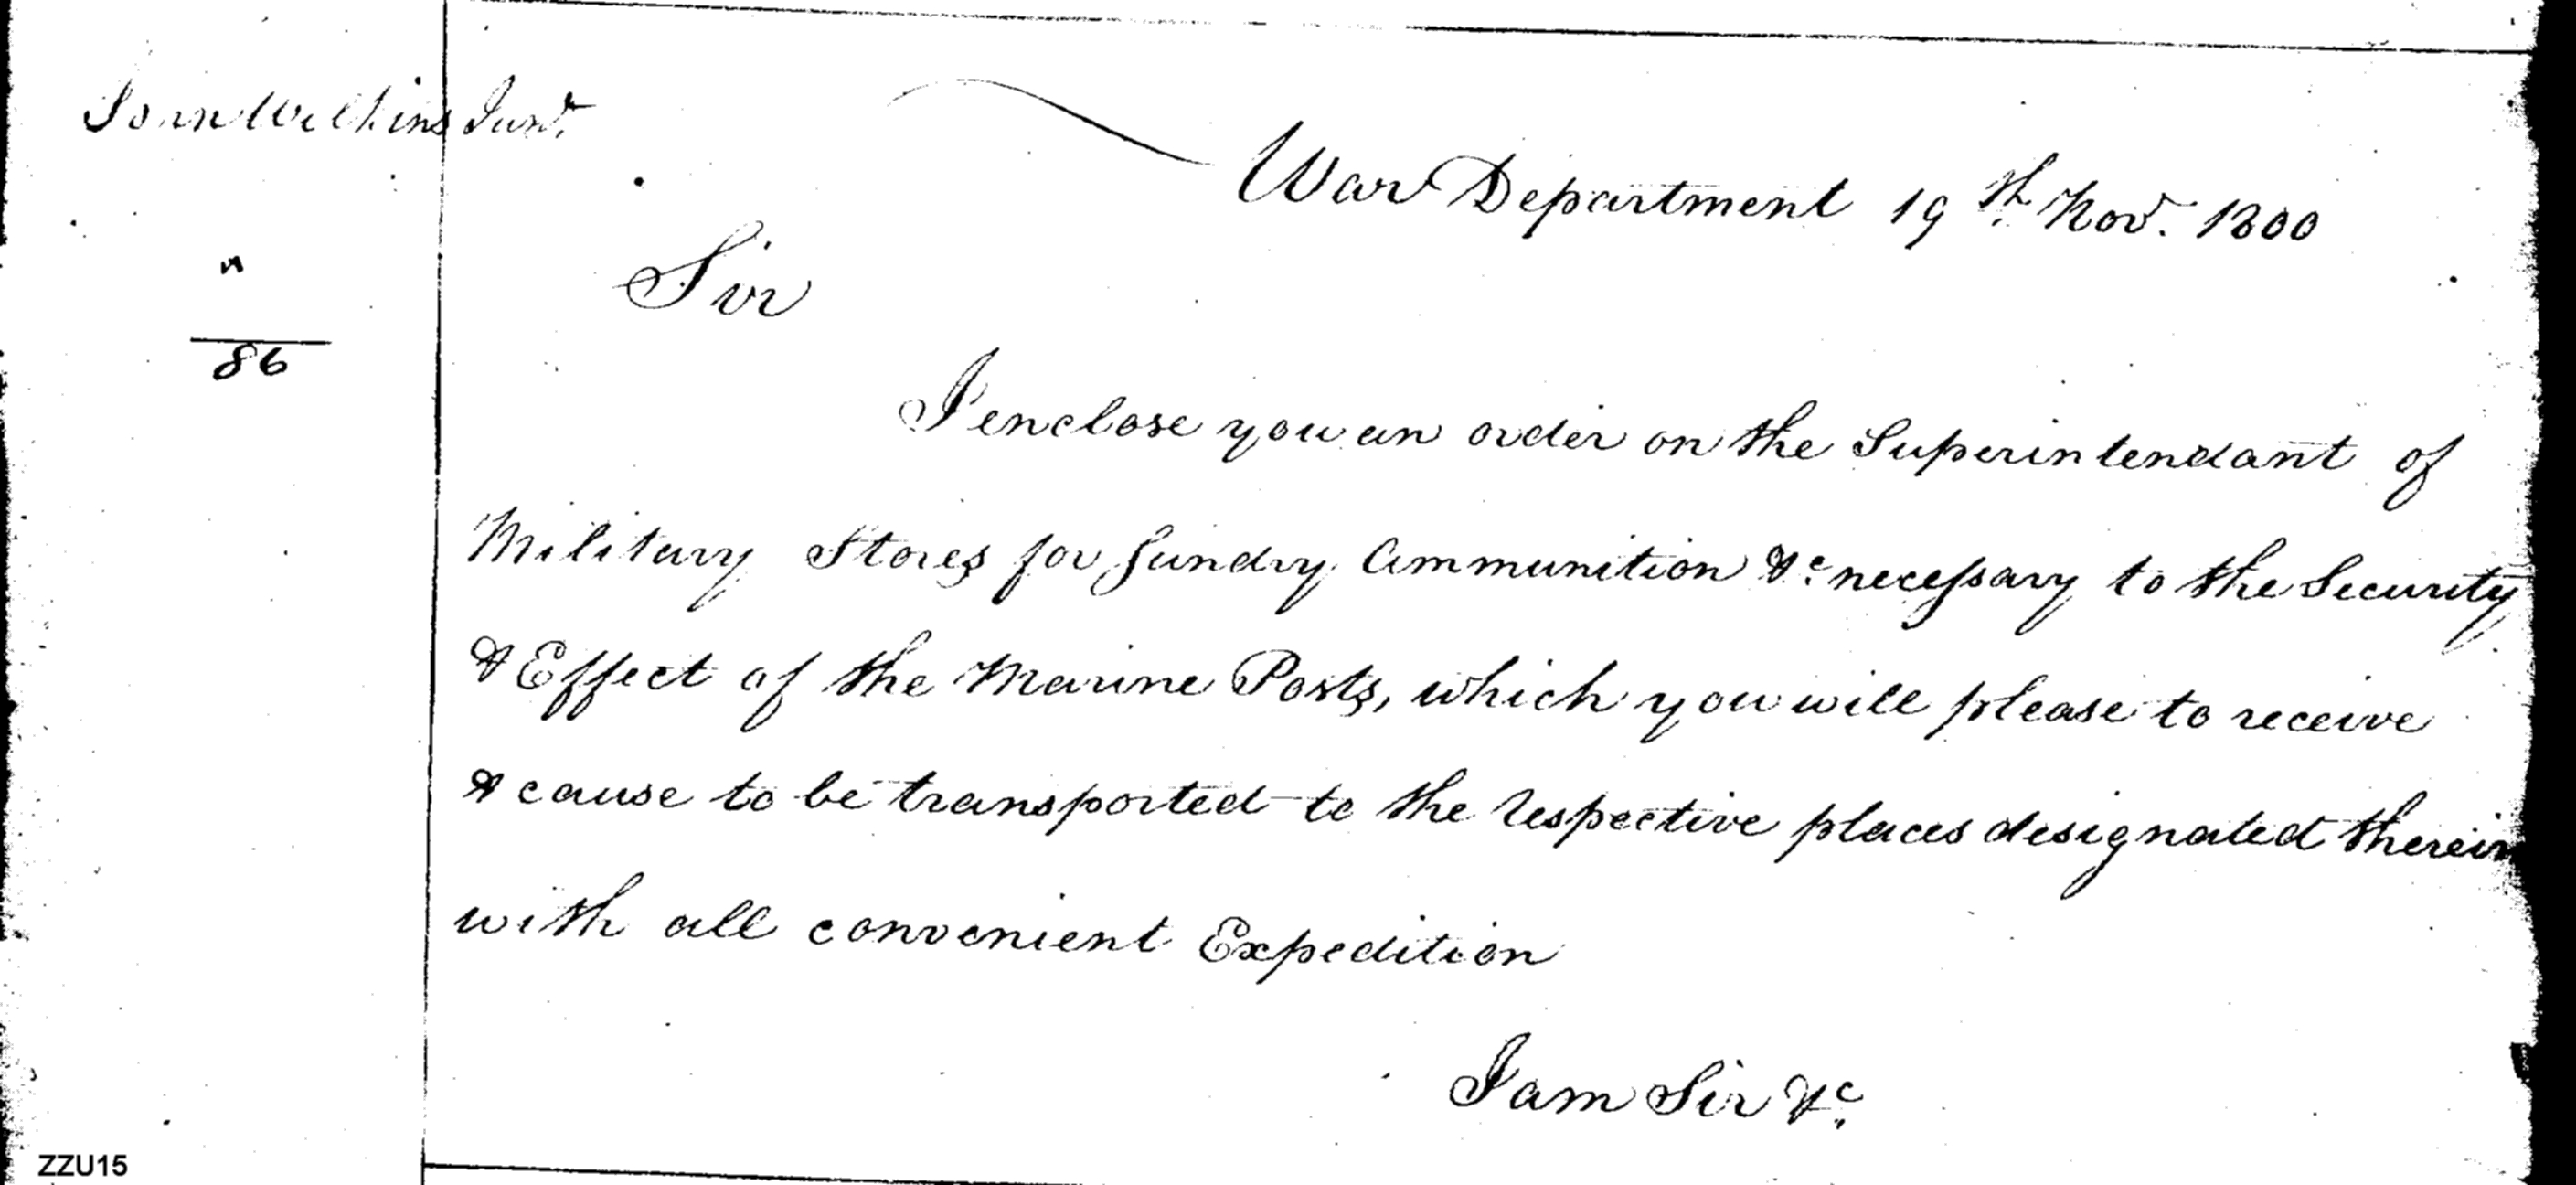 John Wilkins Junr.
War Department 19th Novr. 1800
"
86
Sir
I enclose you an order on the Superintendant of
Military Stores for sundry Ammunition &c necessary to the Security
& Effect of the Marine Posts, which you will please to receive
& cause to be transported to the respective places designated therein
with all convenient Expedition
I am Sir &c.
ZZU15